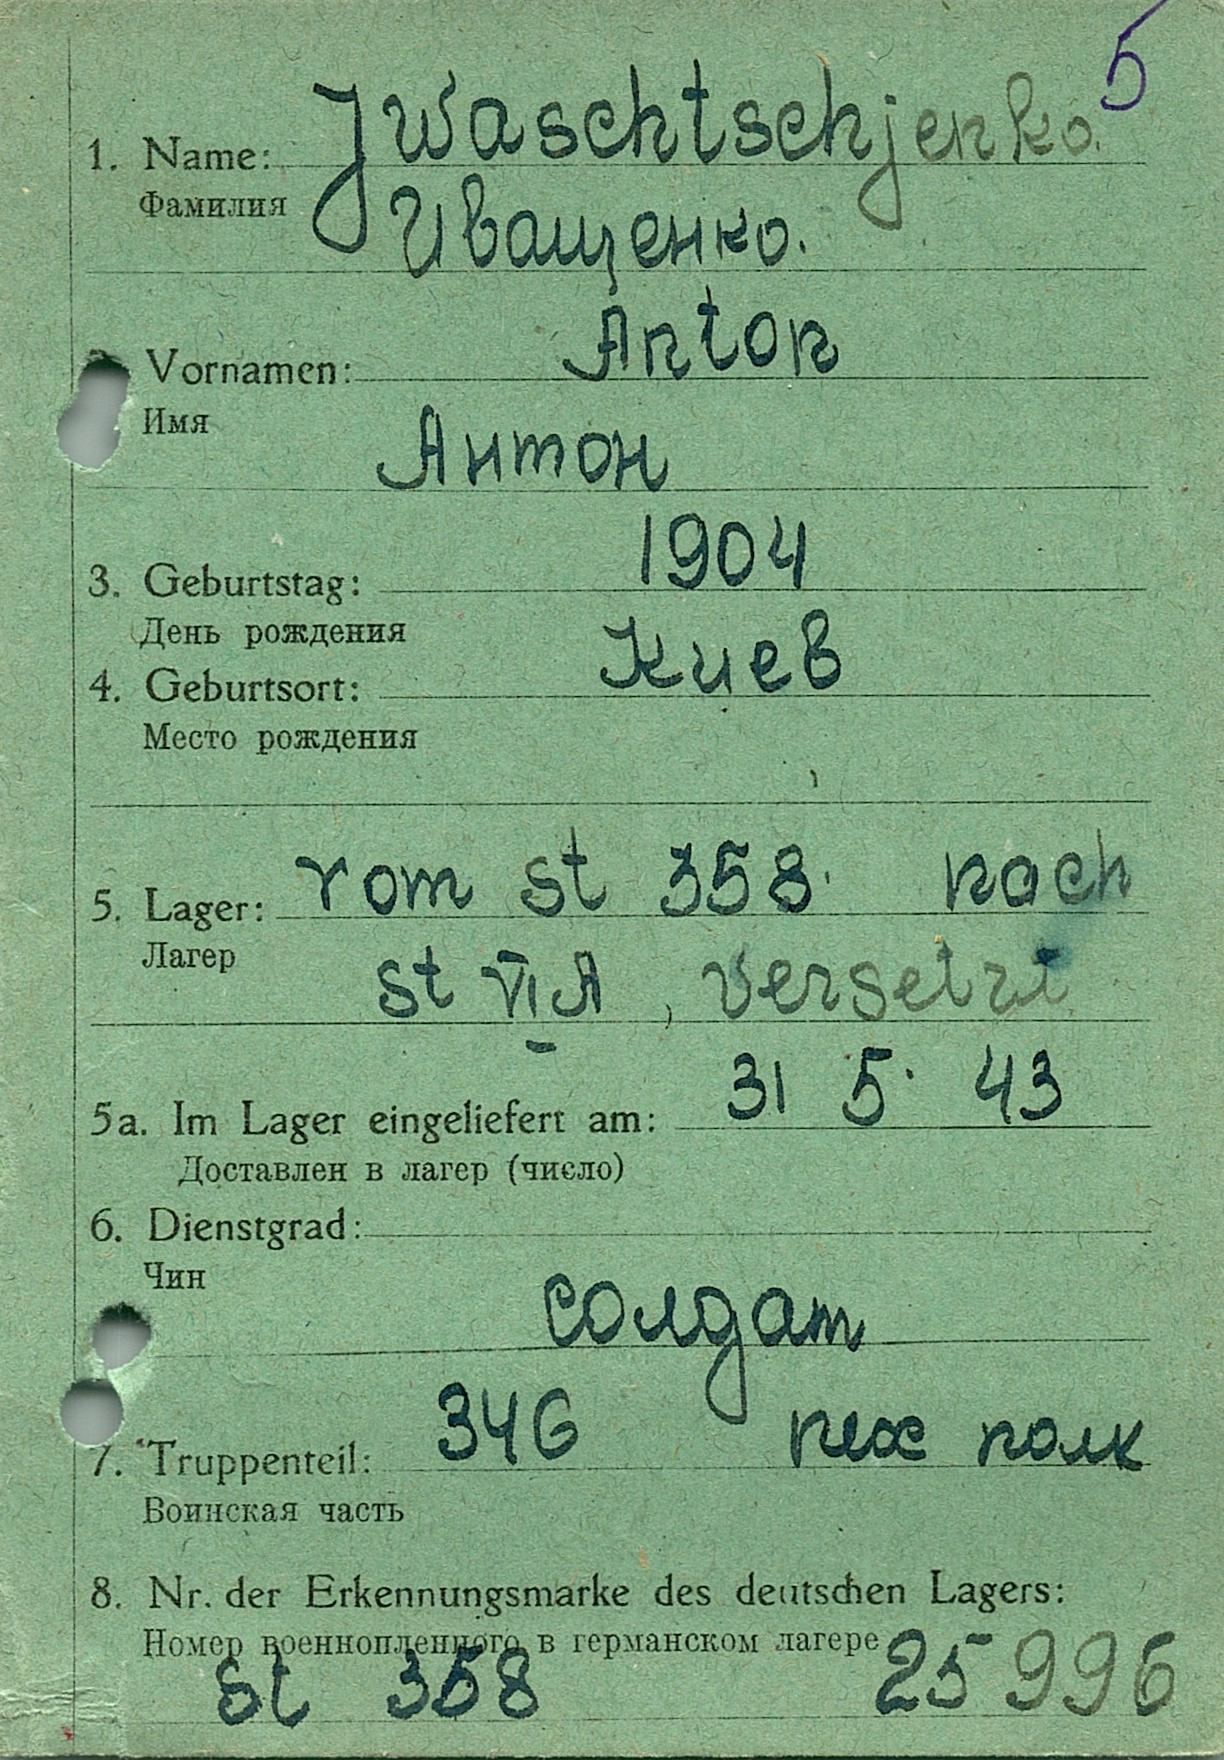 5
Jwaschtschjenko.
1. Name:
Фамилия
Иващенко.
Anton
Vornamen:
Имя
Антон
1904
3. Geburtstag:
День рождения
Киев
4. Geburtsort:
Место рождения
5. Lager: vom st 358. nach
Лагер
st VI A, versetzt
31 5. 43
5a. Im Lager eingeliefert am:
Доставлен в лагер (число)
6. Dienstgrad:
Чин
солдат
346 пех полк
7. Truppenteil:
Воинская часть
8. Nr. der Erkennungsmarke des deutschen Lagers:
Номер военнопленного в германском лагере
st 358 25996